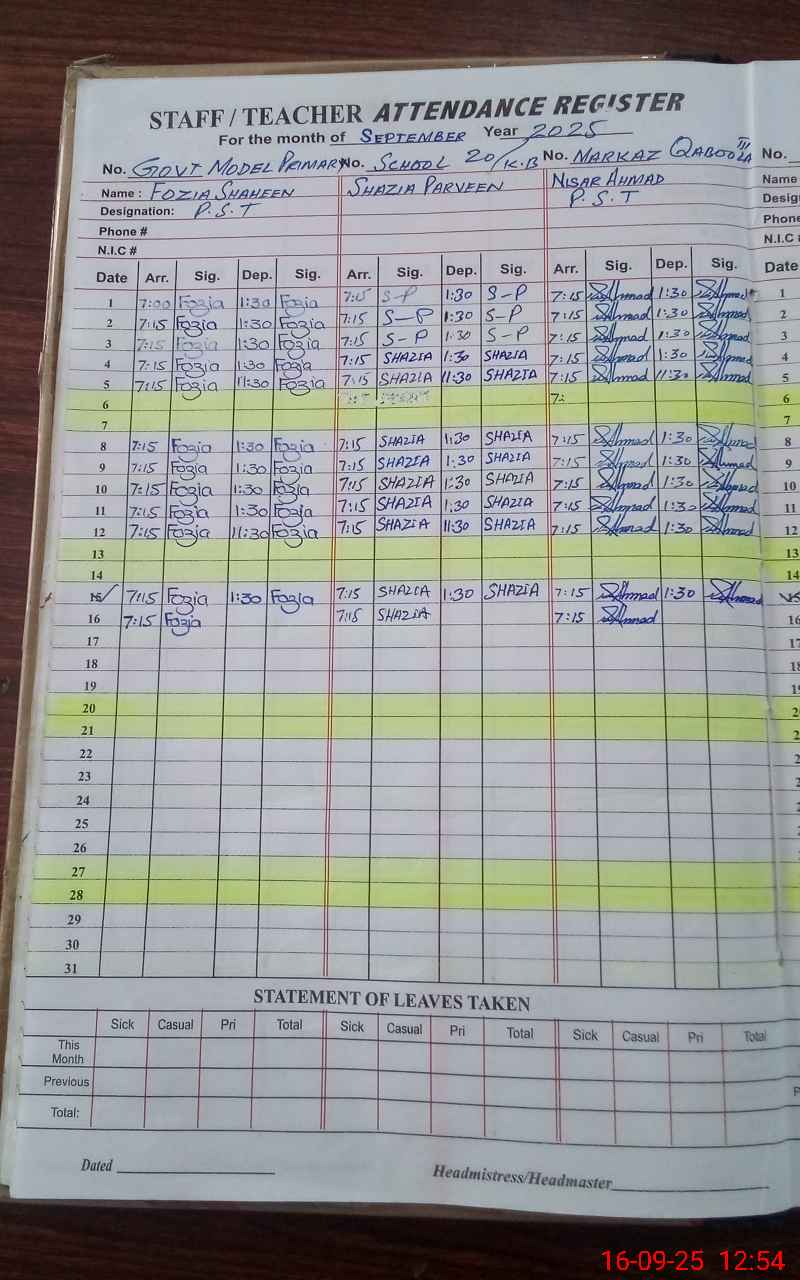 STAFF / TEACHER ATTENDANCE REGISTER
For the month of SEPTEMBER Year 2025
No. GOVT MODEL PRIMARY No. SCHOOL 20/K.B No. MARKAZ QABOOLA III No.
Name : FOZIA SHAHEEN SHAZIA PARVEEN NISAR AHMAD Name
Designation: P.S.T P.S.T Desig
Phone # Phone
N.I.C # N.I.C
Date Arr. Sig. Dep. Sig. Arr. Sig. Dep. Sig. Arr. Sig. Dep. Sig. Date
1 7:00 Fozia 1:30 Fozia 7:15 S-P 1:30 S-P 7:15 Ahmad 1:30 Ahmad 1
2 7:15 Fozia 1:30 Fozia 7:15 S-P 1:30 S-P 7:15 Ahmad 1:30 Ahmad 2
3 7:15 Fozia 1:30 Fozia 7:15 S-P 1:30 S-P 7:15 Ahmad 1:30 Ahmad 3
4 7:15 Fozia 1:30 Fozia 7:15 SHAZIA 1:30 SHAZIA 7:15 Ahmad 1:30 Ahmad 4
5 7:15 Fozia 11:30 Fozia 7:15 SHAZIA 11:30 SHAZIA 7:15 Ahmad 11:30 Ahmad 5
6 7: 6
7 7
8 7:15 Fozia 1:30 Fozia 7:15 SHAZIA 1:30 SHAZIA 7:15 Ahmad 1:30 Ahmad 8
9 7:15 Fozia 1:30 Fozia 7:15 SHAZIA 1:30 SHAZIA 7:15 Ahmad 1:30 Ahmad 9
10 7:15 Fozia 1:30 Fozia 7:15 SHAZIA 1:30 SHAZIA 7:15 Ahmad 1:30 Ahmad 10
11 7:15 Fozia 1:30 Fozia 7:15 SHAZIA 1:30 SHAZIA 7:15 Ahmad 1:30 Ahmad 11
12 7:15 Fozia 11:30 Fozia 7:15 SHAZIA 11:30 SHAZIA 7:15 Ahmad 1:30 Ahmad 12
13 13
14 14
15 7:15 Fozia 1:30 Fozia 7:15 SHAZIA 1:30 SHAZIA 7:15 Ahmad 1:30 Ahmad 15
16 7:15 Fozia 7:15 SHAZIA 7:15 Ahmad 16
17 17
18
19
20
21
22
23
24
25
26
27
28
29
30
31
STATEMENT OF LEAVES TAKEN
Sick Casual Pri Total Sick Casual Pri Total Sick Casual Pri Total
This Month
Previous
Total:
Dated Headmistress/Headmaster
16-09-25 12:54